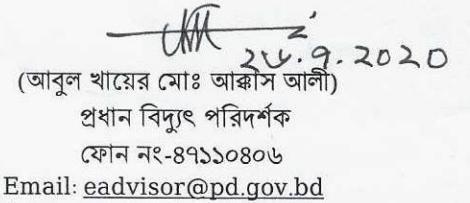 ২৬.৭.২০২০
(আবুল খায়ের মোঃ আক্কাস আলী)
প্রধান বিদ্যুৎ পরিদর্শক
ফোন নং-৪৭১১০৪০৬
Email: eadvisor@pd.gov.bd